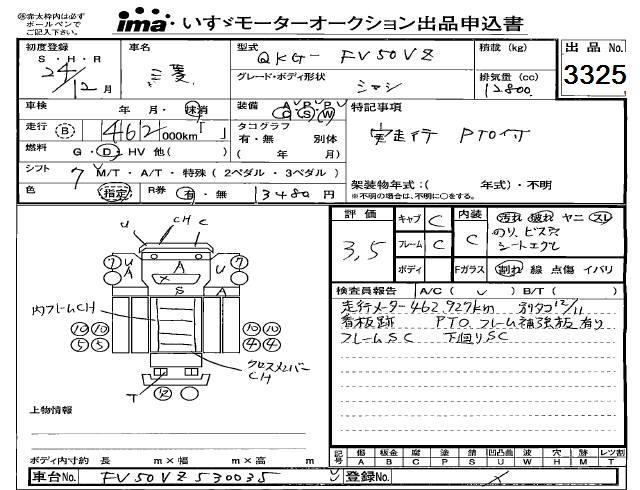 ㊟赤太枠内は必ず
ボールペンで
ご記入下さい。
ima いすゞモーターオークション出品申込書
初度登録
S・H・R
24/12月
車名
三菱
型式
QKG- FV50VZ
グレード・ボディ形状
シャシ
積載 (kg)
排気量 (cc)
12800
出品No.
3325
車検 年 月・抹消
装備 A P P
C S W
特記事項
走行 (B) 462 000km
タコグラフ
有・無 別体
( 年 月)
実走行 PTO付
燃料 G・D・HV 他( )
シフト 7 M/T・A/T・特殊 (2ペダル・3ペダル)
色 指定 R券 有・無 13480円
架装物年式:( 年式)・不明
※不明の場合は、不明に○をする。
評価
3,5
キャブ C 内装 C
汚れ 破れ ヤニ スレ
のり、ビス穴
シートエグレ
フレーム C
ボディ Fガラス 割れ 線 点傷 イバリ
検査員報告 A/C ( ) B/T ( )
走行メーター462,927km 別タコ12/11
看板跡 PTO フレーム補強板有り
フレームSC 下回りSC
U CH C
7 U A A U 7 A
S
内フレームCH
10 10 10 10
5 5 4 4
クロスメンバーCH
T 12
上物情報
ボディ内寸約 長 m×幅 m×高 m
記号 傷 板金 腐 塗 錆 凹凸曲 波 穴 跡 レツ割
A B C P S U W H M T
車台No. FV50VZ530035
登録No.